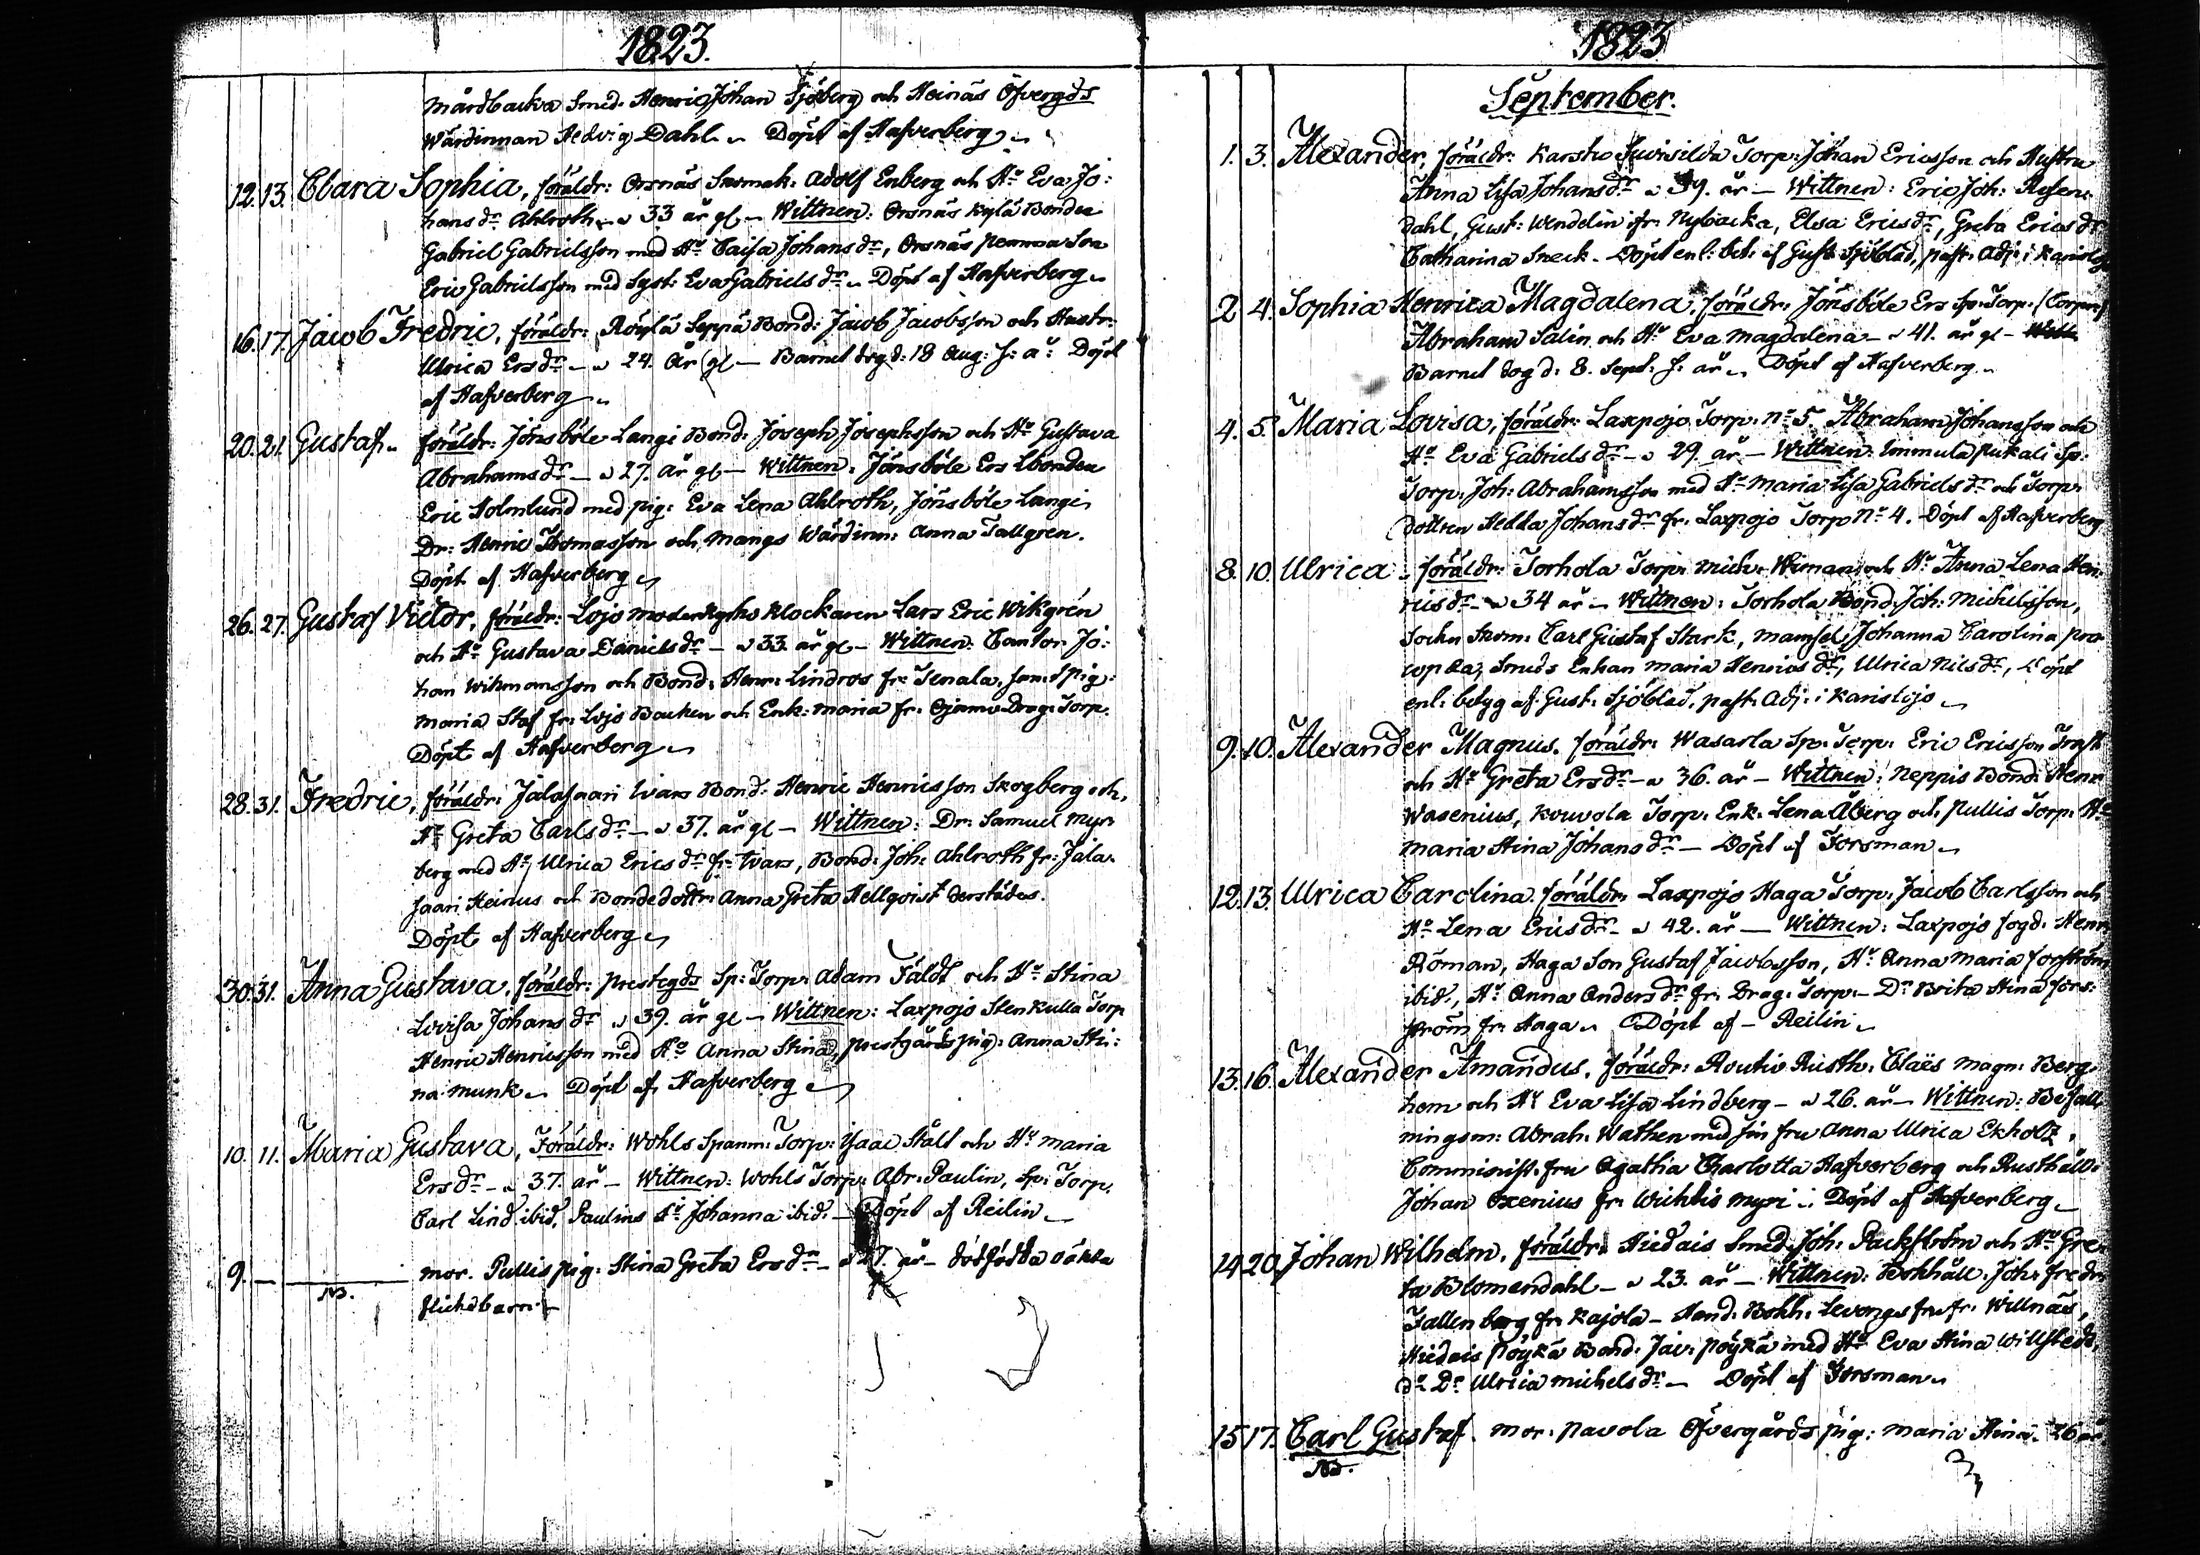 1823.
Mårdbacka Smed. Henric Johan Sjöberg och Heinäs Öfvergds
Wärdinnan Hedvig Dahl. Döpt af Hafverberg
12. 13. Clara Sophia, föräldr: Orsnäs Adolf Enberg och Hu Eva Jo:
hans dr Ahlroth - 33 år gl - Wittnen: Orsnäs Kylä Bonden
Gabriel Gabrielsson med Hu Caisa Johans dr, Orsnäs Son
Eric Gabrielsson med Syst: Eva Gabriels dr. Döpt af Hafverberg
16. 17. Jacob Fredric, föräldr: Röylä Seppä Bond: Jacob Jacobsson och Hustr:
Ulrica Ers dr - 24. år gl - Barnet dog d: 18 Aug: s: å: Döpt
af Hafverberg
20. 21. Gustaf. föräldr: Jönsböle Langi Bond: Joseph Josephsson och Hu Gustava
Abrahams dr - 27. år gl - Wittnen: Jönsböle Ers Bonden
Eric Holmlund med pig: Eva Lena Ahlroth, Jönsböle Langi
Dr: Henric Thomasson och Mangs Wärdinn: Anna Tallgren.
Döpt af Hafverberg
26. 27. Gustaf Victor, föräldr: Lojo Moderkyrko Klockaren Lars Eric Wikgrén
och Hu Gustava Daniels dr - 33. år gl - Wittnen: Cantor Jo:
han Wikmansson och Bond: Henr: Lindros fr: Tenala, samt pig:
Maria Staf fr: Lojo Backen och Enk: Maria fr: Ojamo Drag: Torp.
Döpt af Hafverberg
28. 31. Fredric, föräldr: Jalasaari Ivars Bond: Henric Henricsson Skogberg och
Hu Greta Carls dr - 37. år gl - Wittnen: Dr: Samuel Myr:
berg med Hu Ulrica Erics dr fr: Ivars, Bond: Joh: Ahlroth fr: Jala:
saari Heinus och Bondedottr: Anna Greta Hellqvist derstädes.
Döpt af Hafverberg
30. 31. Anna Gustava, föräldr: Prestegds Sp: Torp: Adam Fäldt och Hu Stina
Lovisa Johans dr 39. år gl - Wittnen: Laxpojo Stenkulla Torp
Henric Henricsson med Hu Anna Stina, Prestgårds pig: Anna Sti:
na Munk. Döpt af Hafverberg
10. 11. Maria Gustava, Föräldr: Wohls Spanm: Torp: Isaac Stält och Hu Maria
Ers dr - 37. år - Wittnen: Wohls Torp: Abr: Paulin, Sp: Torp.
Carl Lind ibid, Paulins Hu Johanna ibid. - Döpt af Reilin
9. - NB. mor. Pullis pig: Stina Greta Ers dr - 27. år - dödfödda oäkta
flickebarn
1823
September.
1. 3. Alexander, föräldr: Karsto Suvisilda Torp: Johan Ericsson och Hustru
Anna Lisa Johans dr - 39. år - Wittnen: Eric Joh: Rosen:
dahl, Gust: Wendelin fr: Nybacka, Elsa Erics dr, Greta Erics dr
Catharina Sneck. Döpt enl: bet: af Gust: Sjöblad, past: Adj: i Karislojo
2 4. Sophia Henrica Magdalena, föräldr: Jönsböle Ers Sp: Torp: (Corpor)
Abraham Salin och Hu Eva Magdalena - 41. år gl - Wittn
Barnet dog d: 8. Sept: s: år. Döpt af Hafverberg
4. 5. Maria Lovisa, föräldr: Laxpojo Torp: No 5. Abraham Johansson och
Hu Eva Gabriels dr - 29. år - Wittnen: Immula Pukali Sp:
Torp: Joh: Abrahamsson med Hu Maria Lisa Gabriels dr och Torp:
dottren Hedda Johans dr fr: Laxpojo Torp No 4. Döpt af Hafverberg
8. 10. Ulrica. föräldr: Torhola Torp: Mich: Wiman och Hu Anna Lena Hen:
rics dr - 34 år - Wittnen: Torhola Bond: Joh: Michelsson,
Sockn Skom: Carl Gustaf Stark, Mamsel Johanna Carolina Pro:
copæa, Smeds Enkan Maria Henrics dr, Ulrica Nils dr, Döpt
enl: betyg af Gust: Sjöblad, past: Adj: i Karislojo
9. 10. Alexander Magnus. föräldr: Wasarla Sp: Torp: Eric Ericsson
och Hu Greta Ers dr - 36. år - Wittnen: Neppis Bond: Henr
Wasenius, Kouvola Torp: Enk: Lena Åberg och Pullis Torp: Hu
Maria Stina Johans dr - Döpt af Forsman
12. 13. Ulrica Carolina. föräldr: Laxpojo Haga Torp: Jacob Carlsson och
Hu Lena Erics dr - 42. år - Wittnen: Laxpojo fogd: Henr
Roman, Haga Son Gustaf Jacobsson, Hu Anna Maria Forström
ibid:, Hu Anna Anders dr fr: Drag: Torp: - Dr Brita Stina Fors:
ström fr: Haga. Döpt af - Reilin
13. 16. Alexander Amandus. föräldr: Routio Rusth: Claës Magn: Berg:
hem och Hu Eva Lisa Lindberg - 26. år - Wittnen: Befall
ningsm: Abrah: Wathen med sin fru Anna Ulrica Ekholz,
Comminist: fru Agatha Charlotta Hafverberg och Rusthåll:
Johan Oxenius fr: Wichtis Myri. Döpt af Hafverberg
14 20. Johan Wilhelm. föräldr: Hiedais Smed: Joh: Packström och Hu Gre:
ta Blomendahl - 23. år - Wittnen: Bokhåll: Joh: Fredr
Fallenberg fr: Kajola - Hand: Bokh: fru fr: Willnäs,
Hiedais Pöykä Bond: Jac: Pöykä med Hu Eva Stina Willstedt
do Dr Ulrica Michels dr - Döpt af Forsman
15 17. Carl Gustaf. mor. Pavola Öfvergårds pig: Maria Stina. 26 år
NB.